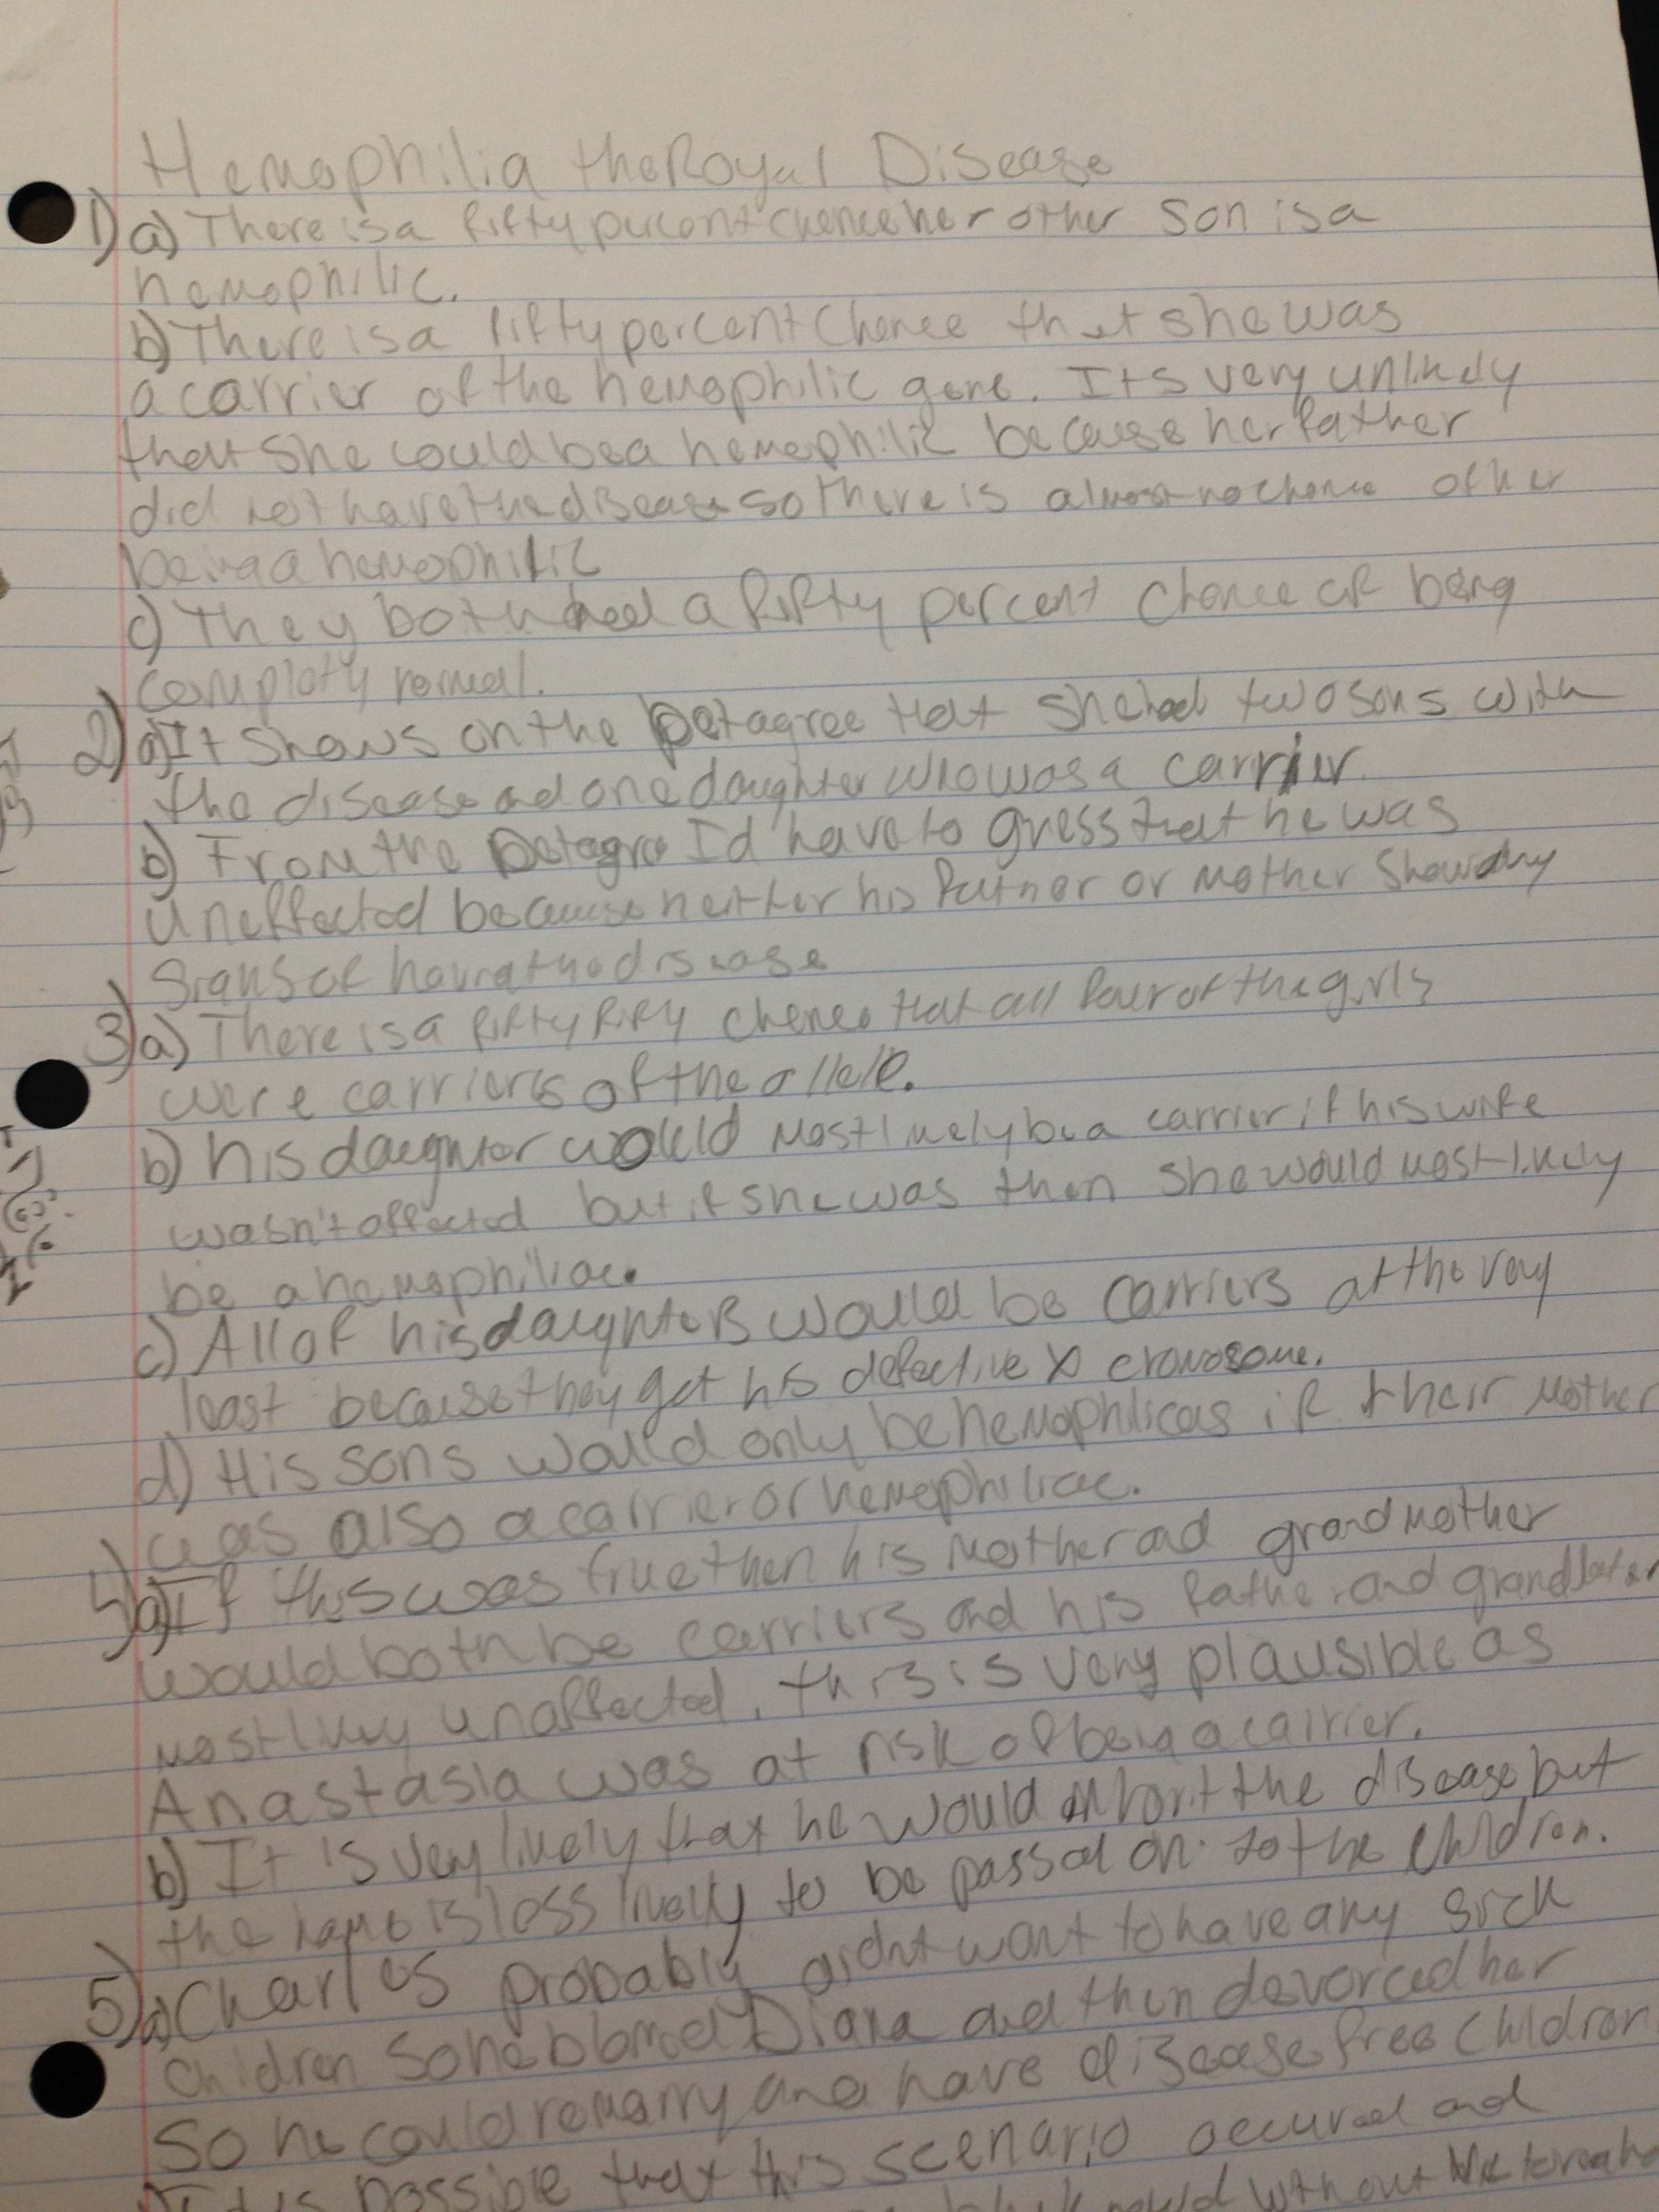 Hemophilia the Royal Disease
1) a) There is a fifty percent chence her other son is a
hemophilic.
b) There is a fifty percent chence that she was
a carrier of the hemophilic gene. Its very unlikely
that she could be a hemophilic because her father
did not have the disease so there is almost no chence of her
being a hemophilic
c) They both had a fifty percent chence of being
complety normal.
2) a) It shows on the petagree that she had two sons with
the disease and one daughter who was a carrier.
b) From the petagre I'd have to guess that he was
uneffected because neither his father or mother show any
signs of having the disease
3) a) There is a fifty fifty chence that all four of the girls
were carriers of the allele.
b) his daughter would most likely be a carrier if his wife
wasn't affected but if she was then she would most likely
be a hemophiliac.
c) All of his daughters would be carriers at the very
least because they get his defective X cromosome.
d) His sons would only be hemophilicas if their mother
was also a carrier or hemophiliac.
4) a) If this was true then his mother and grandmother
would both be carriers and his father and grandfather
most likely unaffected, this is very plausible as
Anastasia was at risk of being a carrier.
b) It is very likely that he would inherit the disease, but
the is less likely to be passed on to the children.
5) a) Charles probably didnt want to have any sick
children so he blamed Diana and then devorced her
so he could remarry and have disease free children
It is possible that this scenario occured and
would without